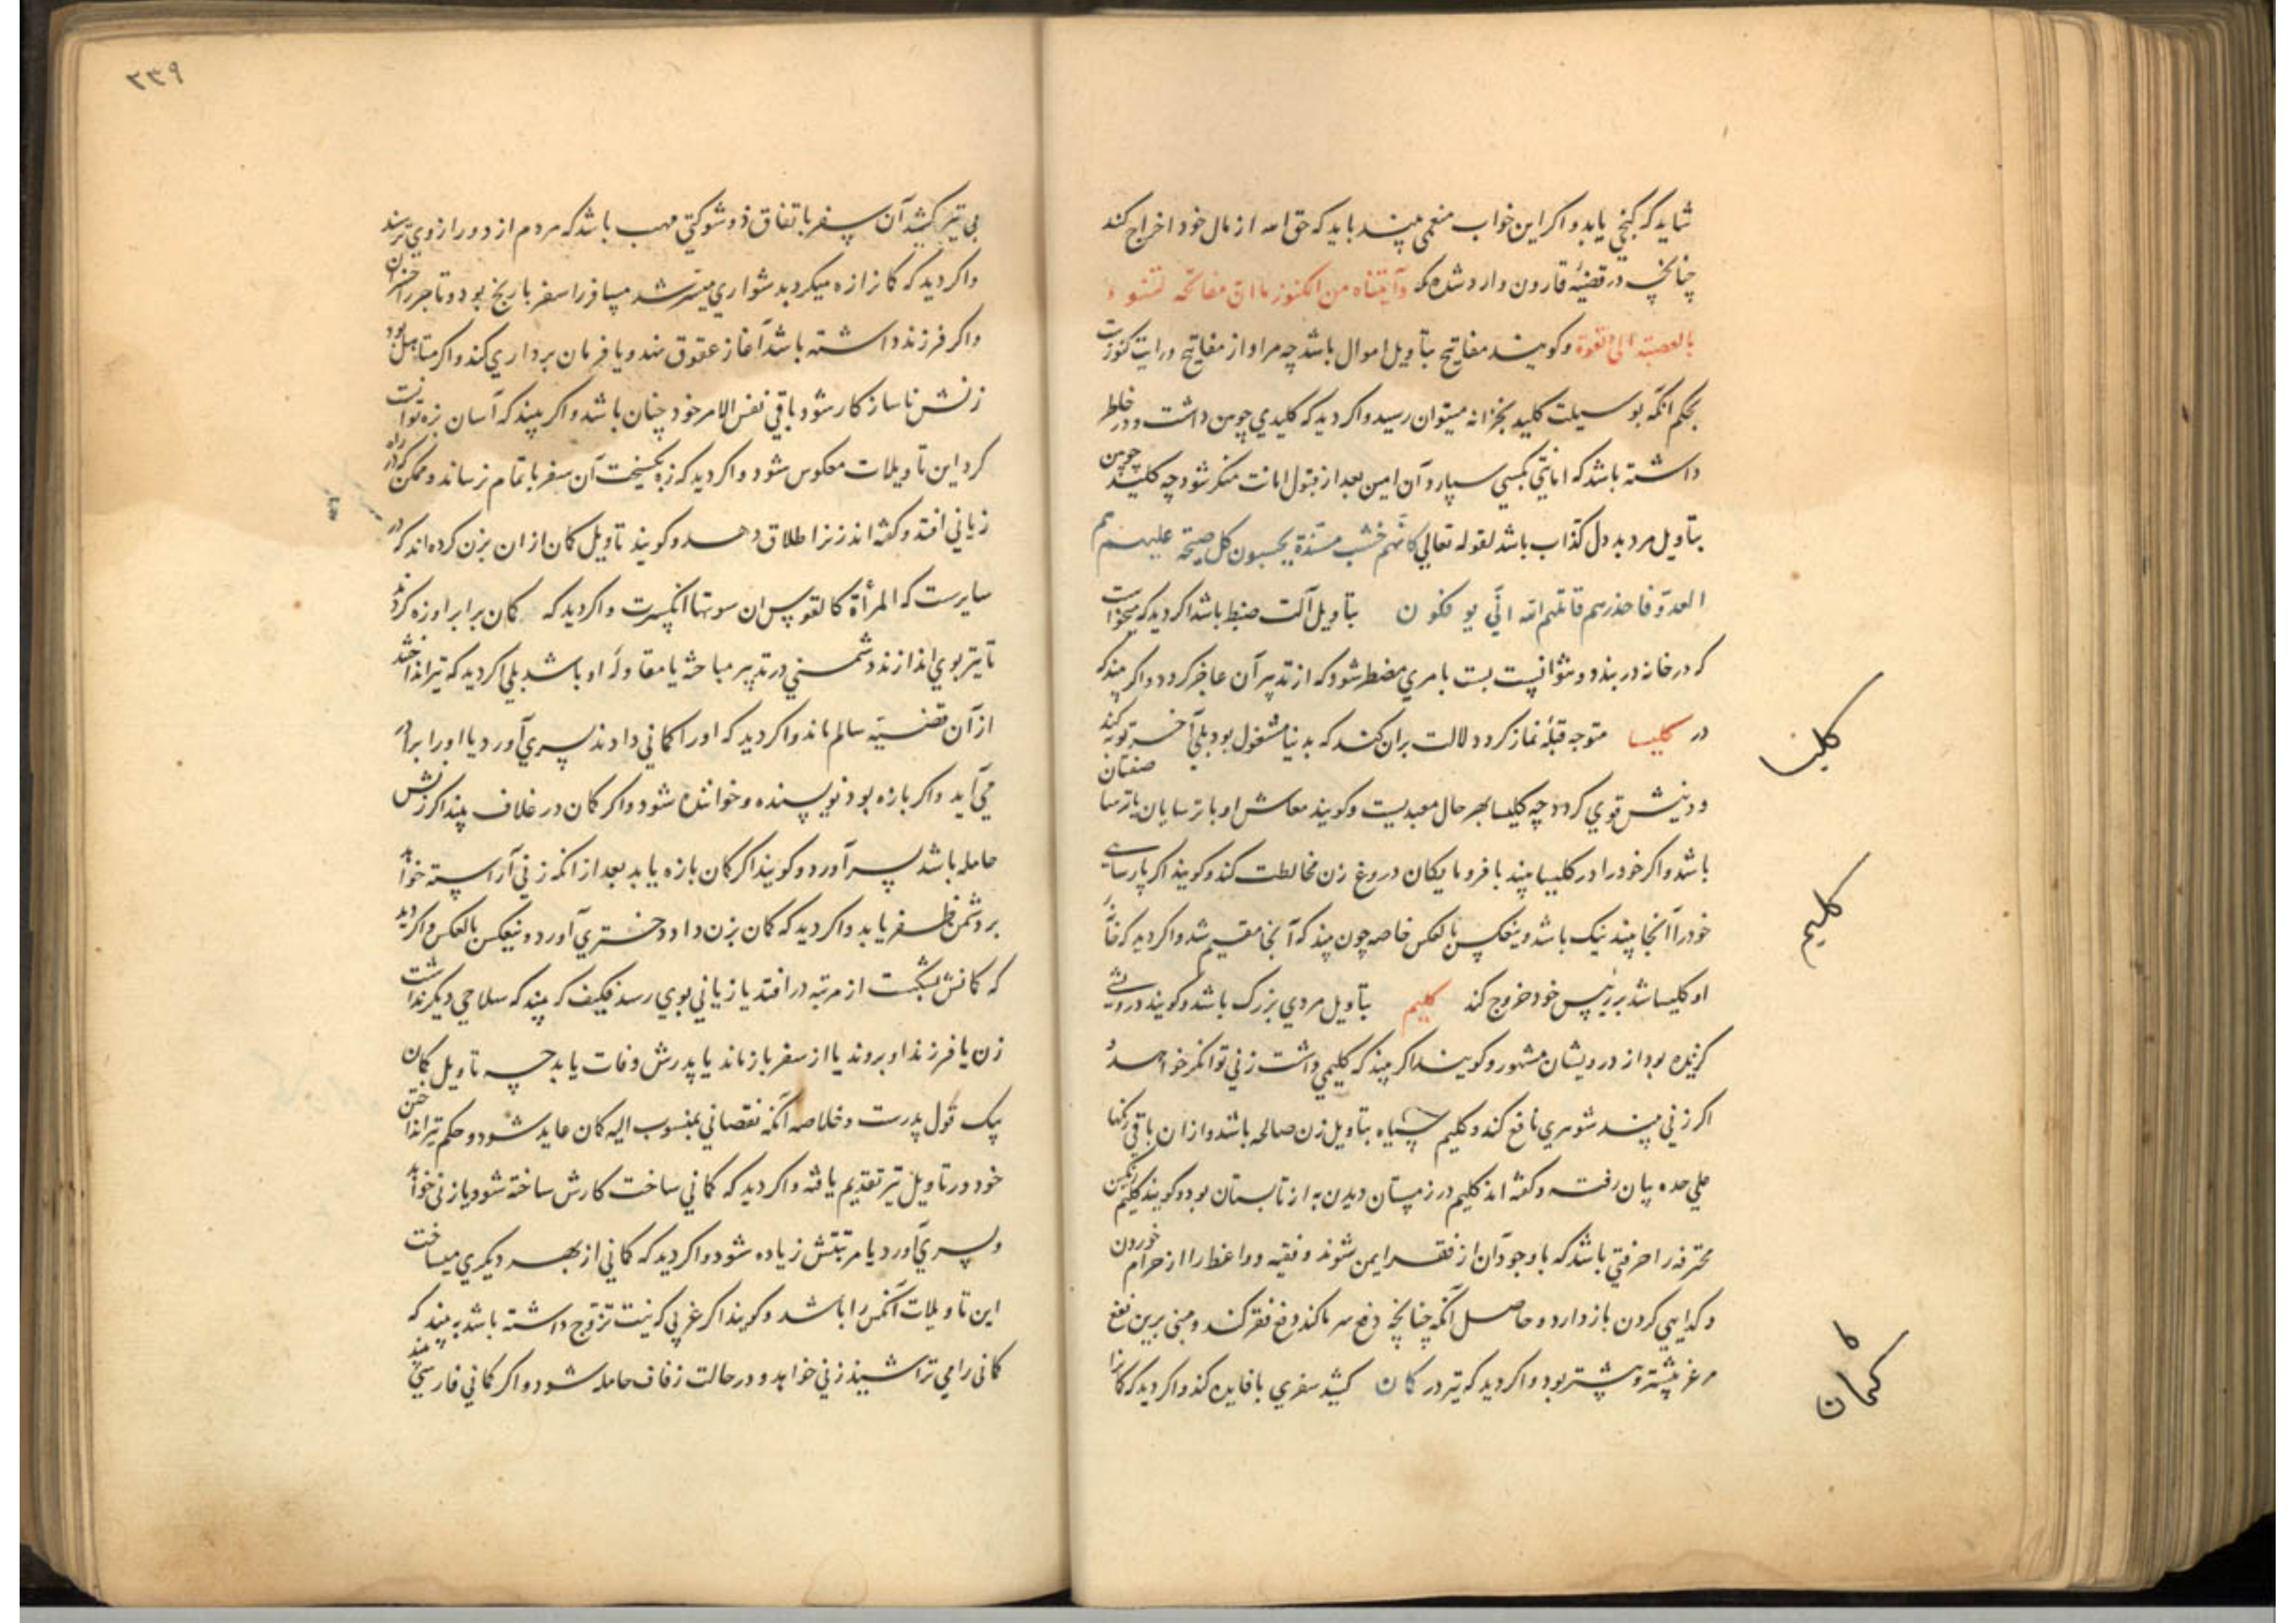 شاید که کنجی یابد و اکر این خواب منعمی بیند باید که حق الله از مال خود اخراج کند
چنانچه در قضیهٔ قارون وارد شده که وآتیناه من الکنوز ما ان مفاتحه لتنوء
بالعصبة اولی القوة و کویند مفاتیح بتاویل اموال باشد چه مراد از مفاتیح درایت کنوزست
بحکم آنکه بوسیلت کلید بخزانه میتوان رسید و اکر دید که کلیدی چوبین داشت و در خاطر
داشته باشد که امانتی بکسی سپارد آن امین بعد از قبول امانت منکر شود چه کلید چوبین
بتاویل مرد بد دل کذاب باشد لقوله تعالی کانهم خشب مسندة یحسبون کل صیحة علیهم هم
العدو فاحذرهم قاتلهم الله انی یوفکون بتاویل آلت ضبط باشد اکر دید که میخواست
که در خانه در بندد و نتوانست بست بامری مضطر شود که از تدبیر آن عاجز کردد و اکر بیند که
در کلیسا متوجه قبله نماز کرد دلالت بران کند که بدنیا مشغول بود بلی آخر توبه کند
و دینش قوی کردد چه کلیسا بهر حال معبدیست و کویند معاش او با ترسایان یا ترسا صفتان
باشد و اکر خود را در کلیسا بیند با فرومایکان دروغ زن مخالطت کند و کویند اکر پارسایی
خود را آنجا بیند نیک باشد و ینعکس بالعکس خاصه چون بیند که آنجا مقیم شد و اکر دید که خانهٔ
او کلیسا شد بر رئیس خود خروج کند کلیم بتاویل مردی بزرک باشد و کویند درویشی
کزیده بود از درویشان مشهور و کویند اکر بیند که کلیمی داشت زنی توانکر خواهد و
اکر زنی بیند شوهری نافع کند و کلیم سیاه بتاویل زن صالحه باشد و از ان باقی رنکها
علی حده بیان رفت و کفته اند کلیم در زمستان دیدن به از تابستان بود و کویند کلیم رنکین
محترفه را حرفتی باشد که با وجود آن از فقر ایمن شوند و فقیه و واعظ را از حرام خوردن
و کدایی کردن باز دارد و حاصل آنکه چنانچه دفع سرما کند دفع فقر کند و مبنی برین نفع
هر غزیشتر و بیشتر بود و اکر دید که تیر در کمان کشید سفری با فایده کند و اکر دید که کمانرا
کلید
کلیم
کمان
۳۳۹
بی تیر کشید آن سفر باتفاق ذو شوکتی مهیب باشد که مردم از دور از وی ترسند
و اکر دید که کمانرا زه میکرد بدشواری میسر شد مسافر را سفر با رنج بود و تاجر را خسران
و اکر فرزند داشته باشد آغاز عقوق نهد و نافرمان برداری کند و اکر متاهل بود
زنش ناسازکار شود باقی نفس الامر خود چنان باشد و اکر بیند که آسان بزه توانست
کرد این تاویلات معکوس شود و اکر دید که زه بکسیخت آن سفر باتمام نرساند و ممکن که در راه
زیانی افتد و کفته اند زنرا طلاق دهد و کویند تاویل کمان از ان بزن کرده اند که در
سایرست که المرأة کالقوس ان سویتها انکسرت و اکر دید که کمان برابر او زه کردند
تا تیر بوی اندازند دشمنی در تدبیر مباحثه یا مقاولهٔ او باشد بلی اکر دید که تیر انداختند
از آن قضیه سالم ماند و اکر دید که او را کمانی دادند پسری آورد یا او را برادر
می آید و اکر با زه بود نویسنده و خواننده شود و اکر کمان در غلاف بیند اکر زنش
حامله باشد پسر آورد و کویند اکر کمان با زه یابد بعد از آنکه زنی آراسته خواهد
بر دشمن ظفر یابد و اکر دید که کمان بزن داد دختری آورد و ینعکس بالعکس و اکر دید
که کمانش بشکست از مرتبه درافتد یا زیانی بوی رسد فکیف که بیند که سلاحی دیکر نداشت
زن یا فرزند او بروند یا از سفر باز ماند یا پدرش وفات یابد چه تاویل کمان
بیک قول پدرست و خلاصه آنکه نقصانی بمنسوب الیه کمان عاید شود و حکم تیر انداختن
خود در تاویل تیر تقدیم یافته و اکر دید که کمانی ساخت کارش ساخته شود یا زنی خواهد
و پسری آورد یا مرتبتش زیاده شود و اکر دید که کمانی از بهر دیکری میساخت
این تاویلات آنکس را باشد و کویند اکر عربی که نیت تزوج داشته باشد بیند که
کمانی را می تراشید زنی خواهد و در حالت زفاف حامله شود و اکر کمانی فارسی بیند